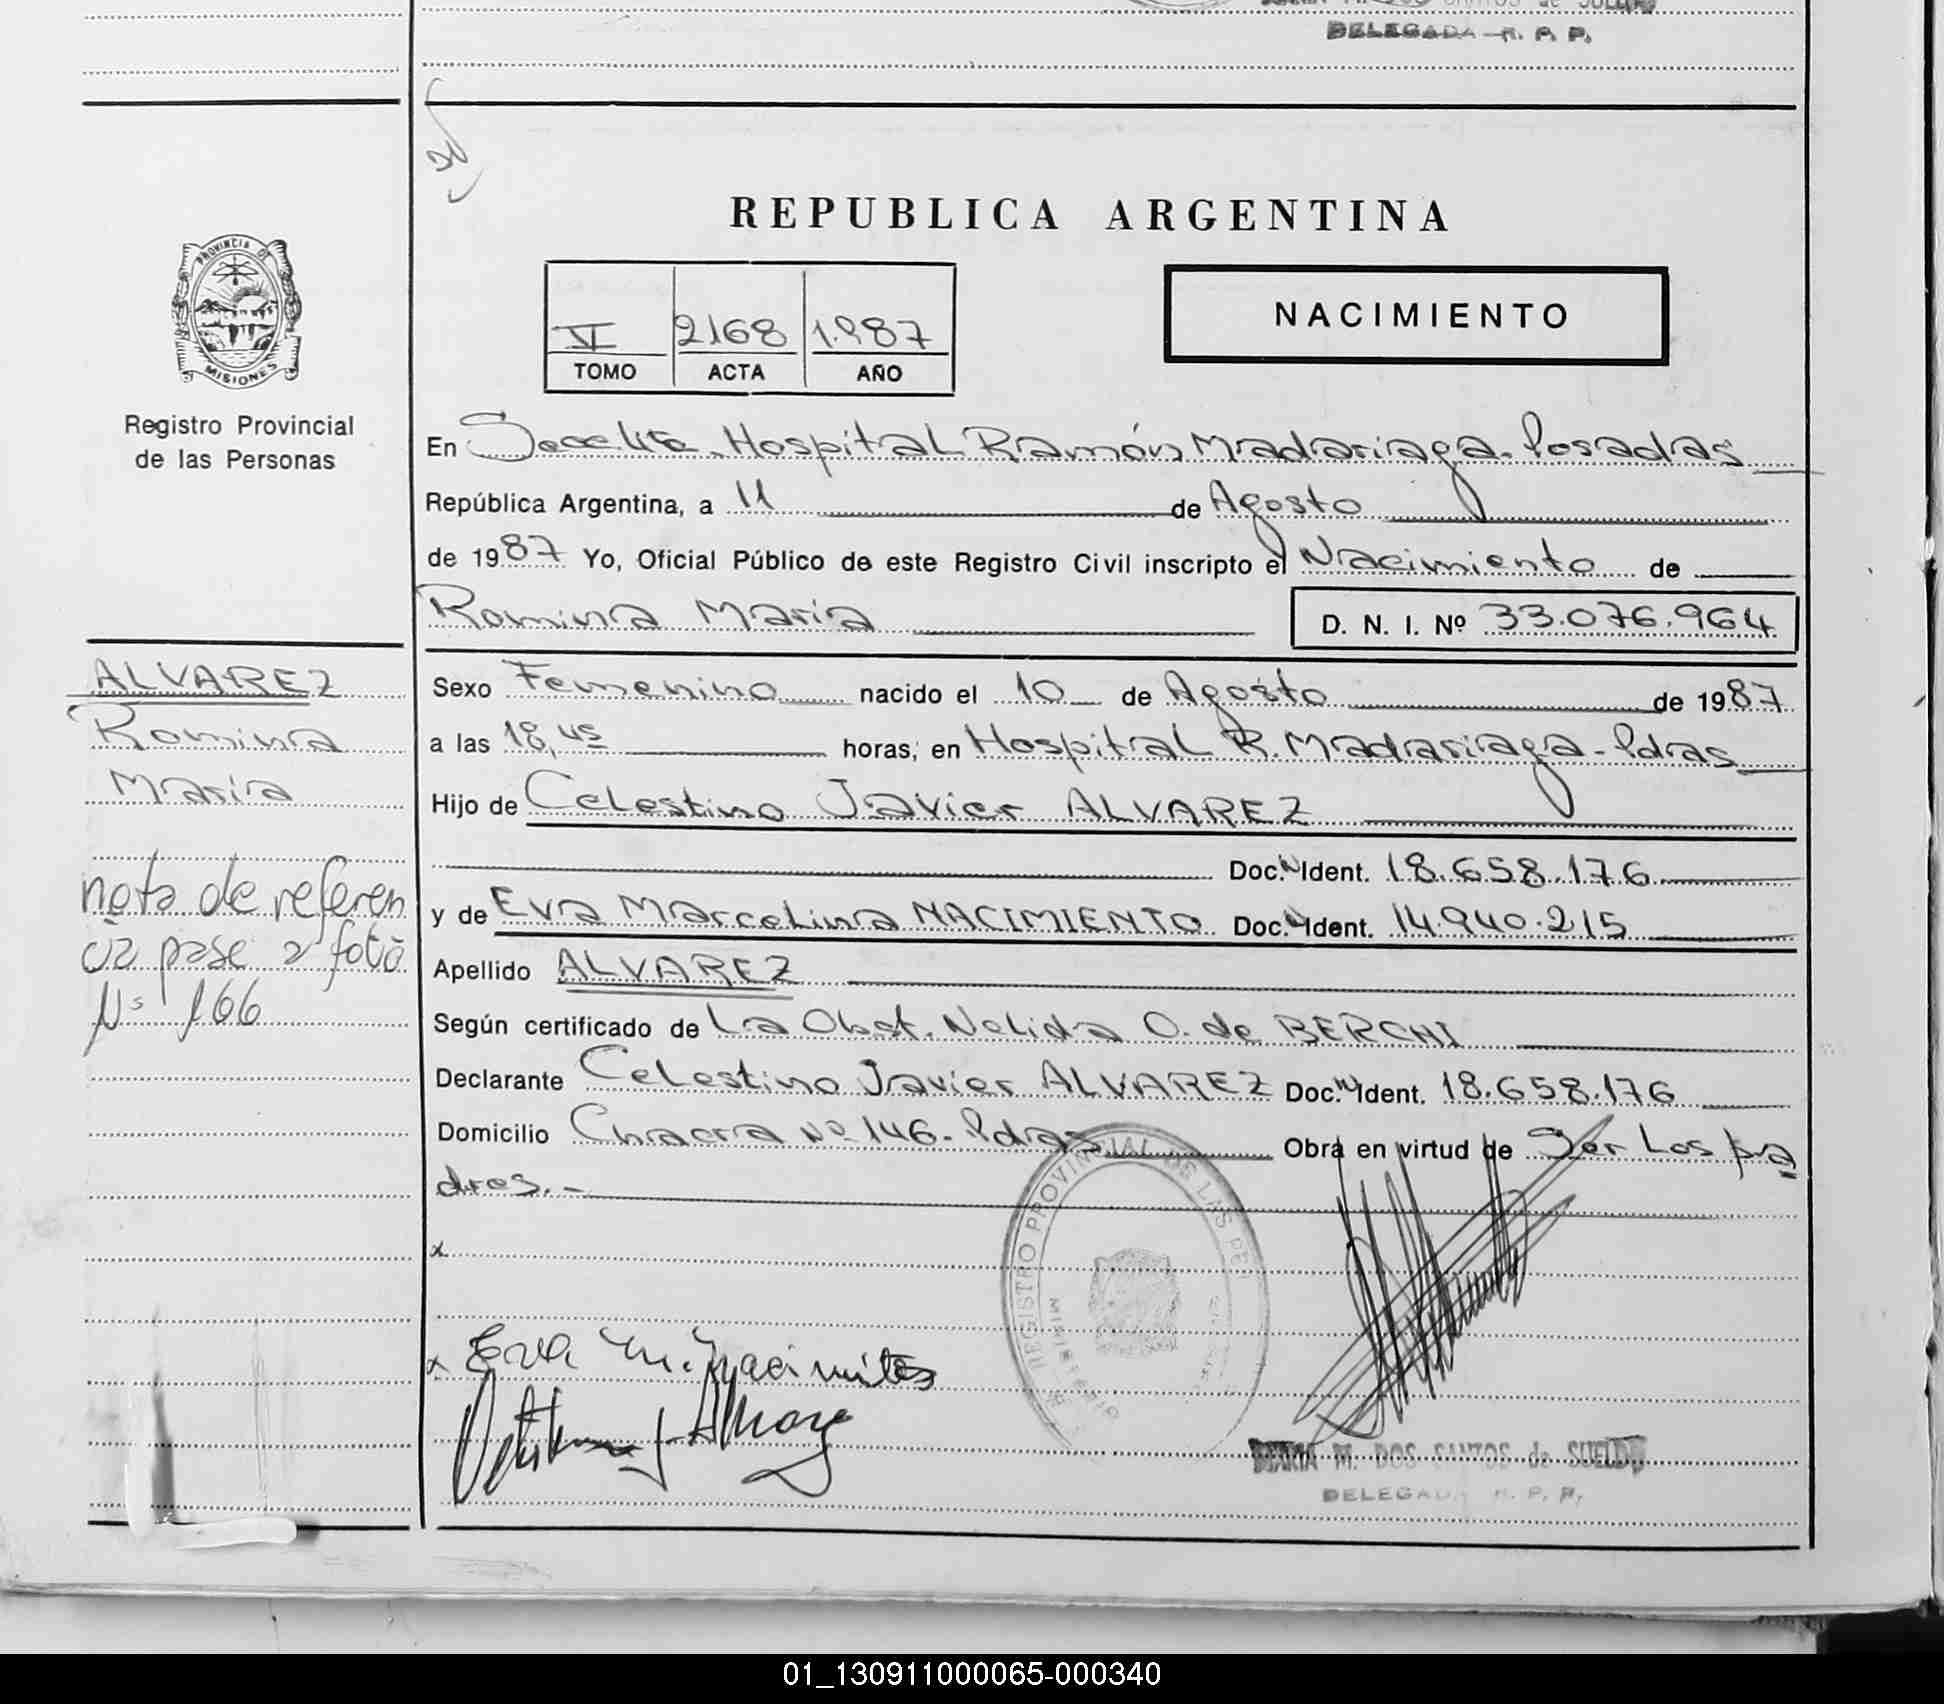 DELEGADA R. P. P.
REPUBLICA ARGENTINA
PROVINCIA DE
MISIONES
VI 2168 1.987
TOMO ACTA AÑO
NACIMIENTO
Registro Provincial
de las Personas
En Hospital Ramón Madariaga - Posadas
República Argentina, a 11 de Agosto
de 1987 Yo, Oficial Público de este Registro Civil inscripto el Nacimiento de
Romina Maria D. N. I. Nº 33.076.964
ALVAREZ
Romina
Maria
nota de referen
cia pase a folio
Nº 166
Sexo Femenino nacido el 10 de Agosto de 1987
a las 18,45 horas, en Hospital R. Madariaga - Pdas
Hijo de Celestino Javier ALVAREZ
Doc. N Ident. 18.658.176
y de Eva Marcelina NACIMIENTO Doc. N Ident. 14.940.215
Apellido ALVAREZ
Según certificado de La Obst. Nelida O. de BERCHI
Declarante Celestino Javier ALVAREZ Doc. N Ident. 18.658.176
Domicilio Chacra Nº 146 - Pdas Obra en virtud de Ser Los pa
dres. -
x
REGISTRO PROVINCIAL DE LAS PER
x Eva M. Nacimiento
MARIA M. DOS SANTOS de SUELDO
DELEGADA R. P. P.
01_130911000065-000340